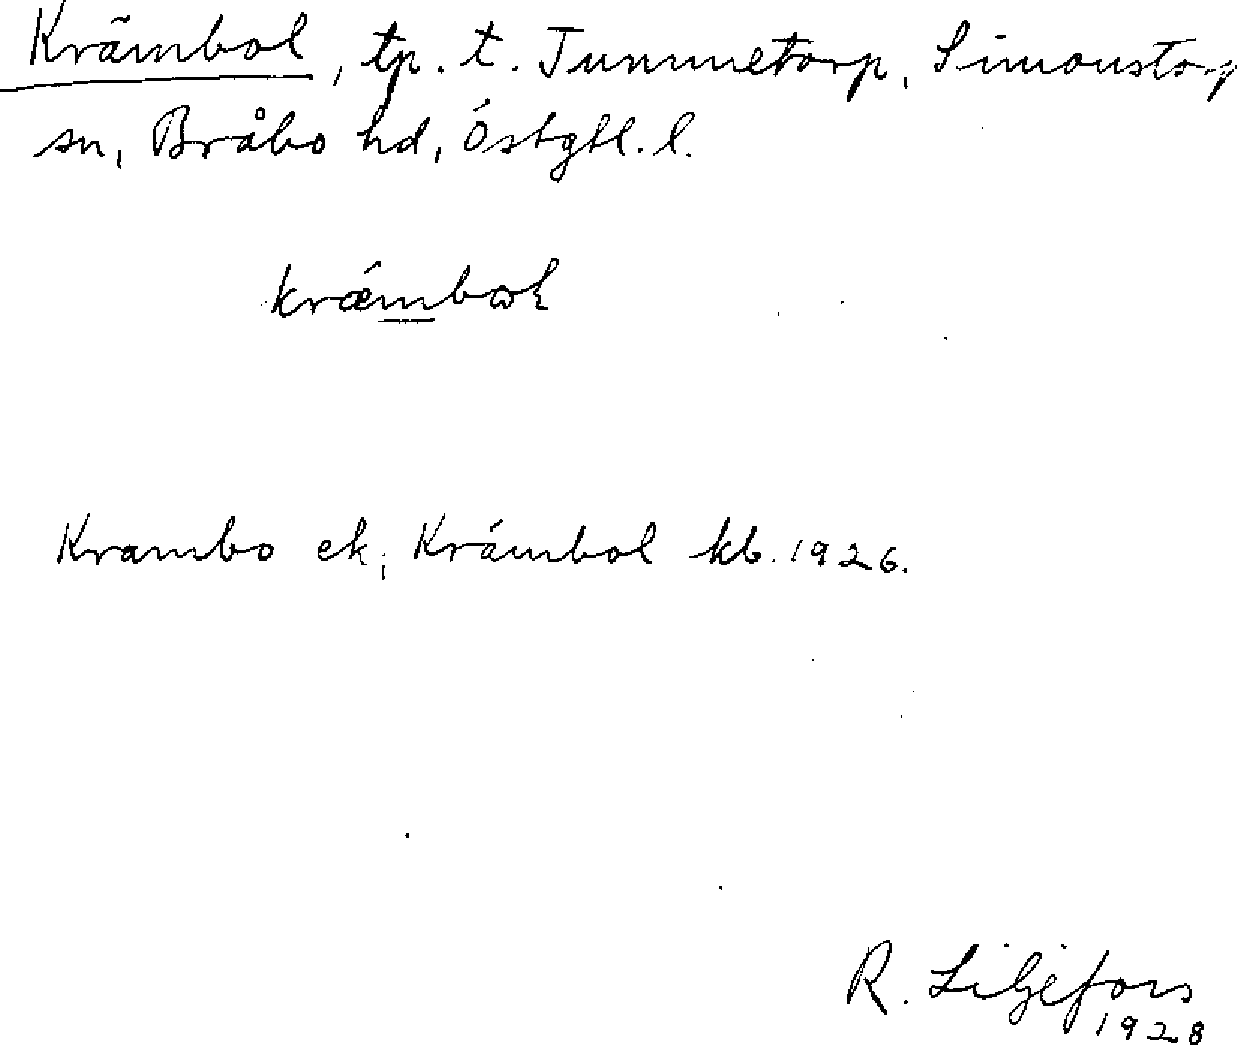 Krämbol, tp. t. Tummetorp, Simonstorp
sn, Bråbo hd, Östgtl. l.
Krambo ek; Krämbol kb. 1926.
R. Liljefors
1928